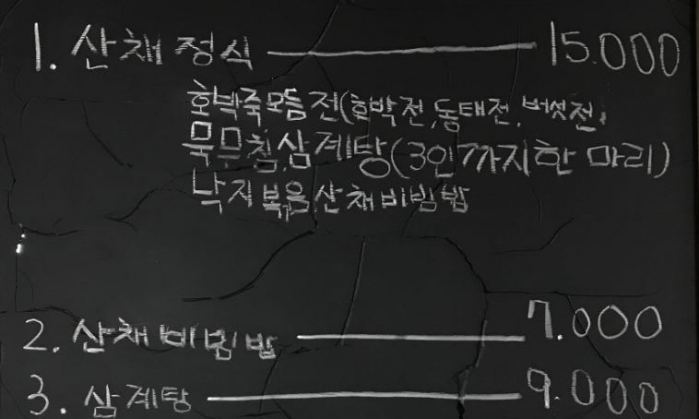 1. 산채정식 15.000
호박죽모듬전(호박전,동태전,버섯전,
묵무침,삼계탕(3인까지한마리)
낙지볶음산채비빔밥
2. 산채비빔밥 7.000
3. 삼계탕 9.000